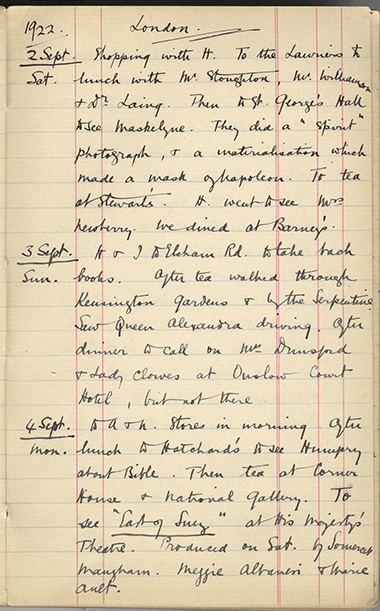 1922. London.
2 Sept. Shopping with H. To the Lawners to
Sat. lunch with Mr. Stoughton, Mr. Williamson
& Dr. Laing. Then to St. George's Hall
to see Maskelyne. They did a "Spirit"
photograph, & a materialisation which
made a mask of Napoleon. To tea
at Stewart's. H. went to see Mrs
Newberry. We dined at Barney's.
3 Sept. H & I to Elsham Rd. to take back
Sun. books. After tea walked through
Kensington Gardens & by the Serpentine
Saw Queen Alexandra driving. After
dinner to call on Mrs Dunsford
& Lady Clowes at Onslow Court
Hotel, but not there
4 Sept. to A & N. Stores in morning After
Mon. lunch to Hatchard's to see Humphry
about Bible. Then tea at Corner
House & National Gallery. To
see "East of Suez" at His Majesty's
Theatre. Produced on Sat. by Somerset
Maugham. Meggie Albanesi & Marie
Ault.